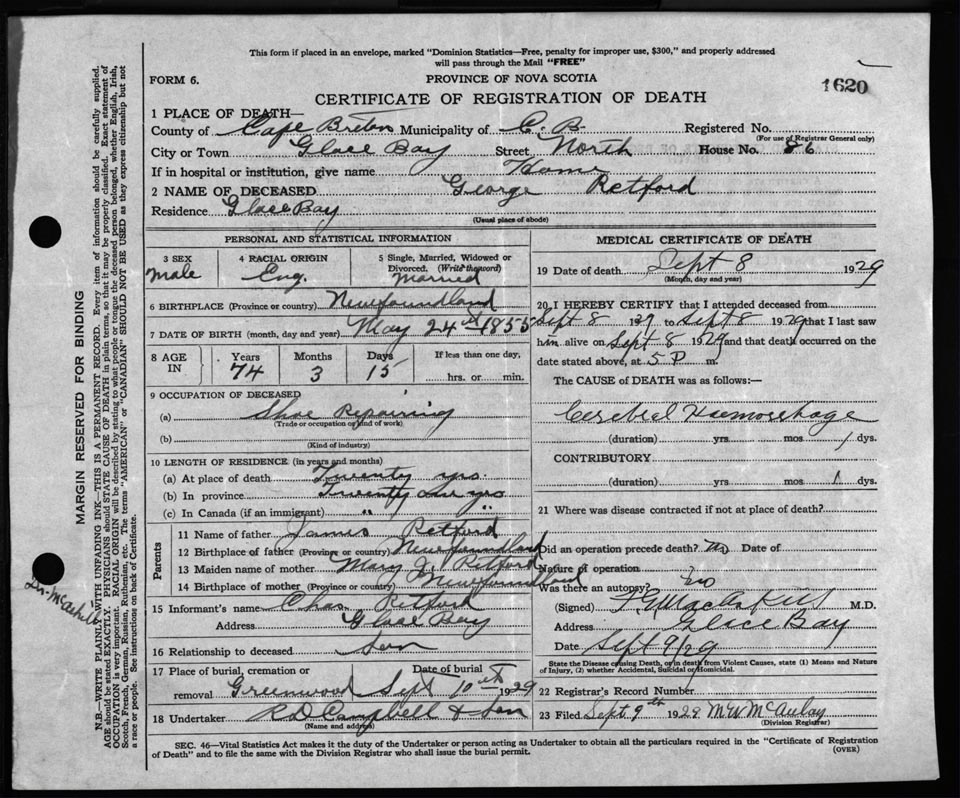 This form if placed in an envelope, marked "Dominion Statistics—Free, penalty for improper use, $300," and properly addressed
will pass through the Mail "FREE"
FORM 6.
PROVINCE OF NOVA SCOTIA
1620
CERTIFICATE OF REGISTRATION OF DEATH
1 PLACE OF DEATH
County of Cape Breton Municipality of C. B. Registered No.
(For use of Registrar General only)
City or Town Glace Bay Street North House No. 86
If in hospital or institution, give name Home
2 NAME OF DECEASED George Retford
Residence Glace Bay
(Usual place of abode)
PERSONAL AND STATISTICAL INFORMATION
3 SEX male
4 RACIAL ORIGIN Eng.
5 Single, Married, Widowed or
Divorced. (Write the word)
Married
6 BIRTHPLACE (Province or country) Newfoundland
7 DATE OF BIRTH (month, day and year) May 24th 1855
8 AGE IN
Years Months Days If less than one day,
74 3 15 hrs. or min.
9 OCCUPATION OF DECEASED
(a) Shoe Repairing
(Trade or occupation or kind of work)
(b)
(Kind of industry)
10 LENGTH OF RESIDENCE (in years and months)
(a) At place of death Twenty yrs.
(b) In province Twenty one yrs
(c) In Canada (if an immigrant) " "
Parents
11 Name of father James Retford
12 Birthplace of father (Province or country) Newfoundland
13 Maiden name of mother Mary J. Retford
14 Birthplace of mother (Province or country) Newfoundland
15 Informant's name Chas. Retford
Address Glace Bay
16 Relationship to deceased Son
17 Place of burial, cremation or Date of burial
removal Greenwood Sept 10th 1929
18 Undertaker R.D. Campbell & Son
(Name and address)
MEDICAL CERTIFICATE OF DEATH
19 Date of death Sept 8 1929
(Month, day and year)
20 I HEREBY CERTIFY that I attended deceased from
Sept 8 1929 to Sept 8 1929 that I last saw
him alive on Sept 8 1929 and that death occurred on the
date stated above, at 5 P m.
The CAUSE OF DEATH was as follows:—
Cerebral Haemorrhage
(duration) yrs mos 1 dys.
CONTRIBUTORY
(duration) yrs mos 1 dys.
21 Where was disease contracted if not at place of death?
Did an operation precede death? No Date of
Nature of operation
Was there an autopsy? No
(Signed) M.D.
Address Glace Bay
Date Sept 9/29
State the Disease causing Death, or in death from Violent Causes, state (1) Means and Nature
of Injury, (2) whether Accidental, Suicidal or Homicidal.
22 Registrar's Record Number
23 Filed Sept 9th 1929 M W McAulay
(Division Registrar)
SEC. 46—Vital Statistics Act makes it the duty of the Undertaker or person acting as Undertaker to obtain all the particulars required in the "Certificate of Registration
of Death" and to file the same with the Division Registrar who shall issue the burial permit.
(OVER)
MARGIN RESERVED FOR BINDING
N.B.—WRITE PLAINLY WITH UNFADING INK—THIS IS A PERMANENT RECORD. Every item of information should be carefully supplied.
AGE should be stated EXACTLY. PHYSICIANS should STATE CAUSE OF DEATH in plain terms, so that it may be properly classified. Exact statement of
OCCUPATION is very important. RACIAL ORIGIN will be described by stating to what people or tongue the deceased person belonged, whether English, Irish,
Scotch, French, German, Russian, Ruthenian, etc. The terms "AMERICAN" or "CANADIAN" SHOULD NOT BE USED as they express citizenship but not
a race or people. See instructions on back of Certificate.